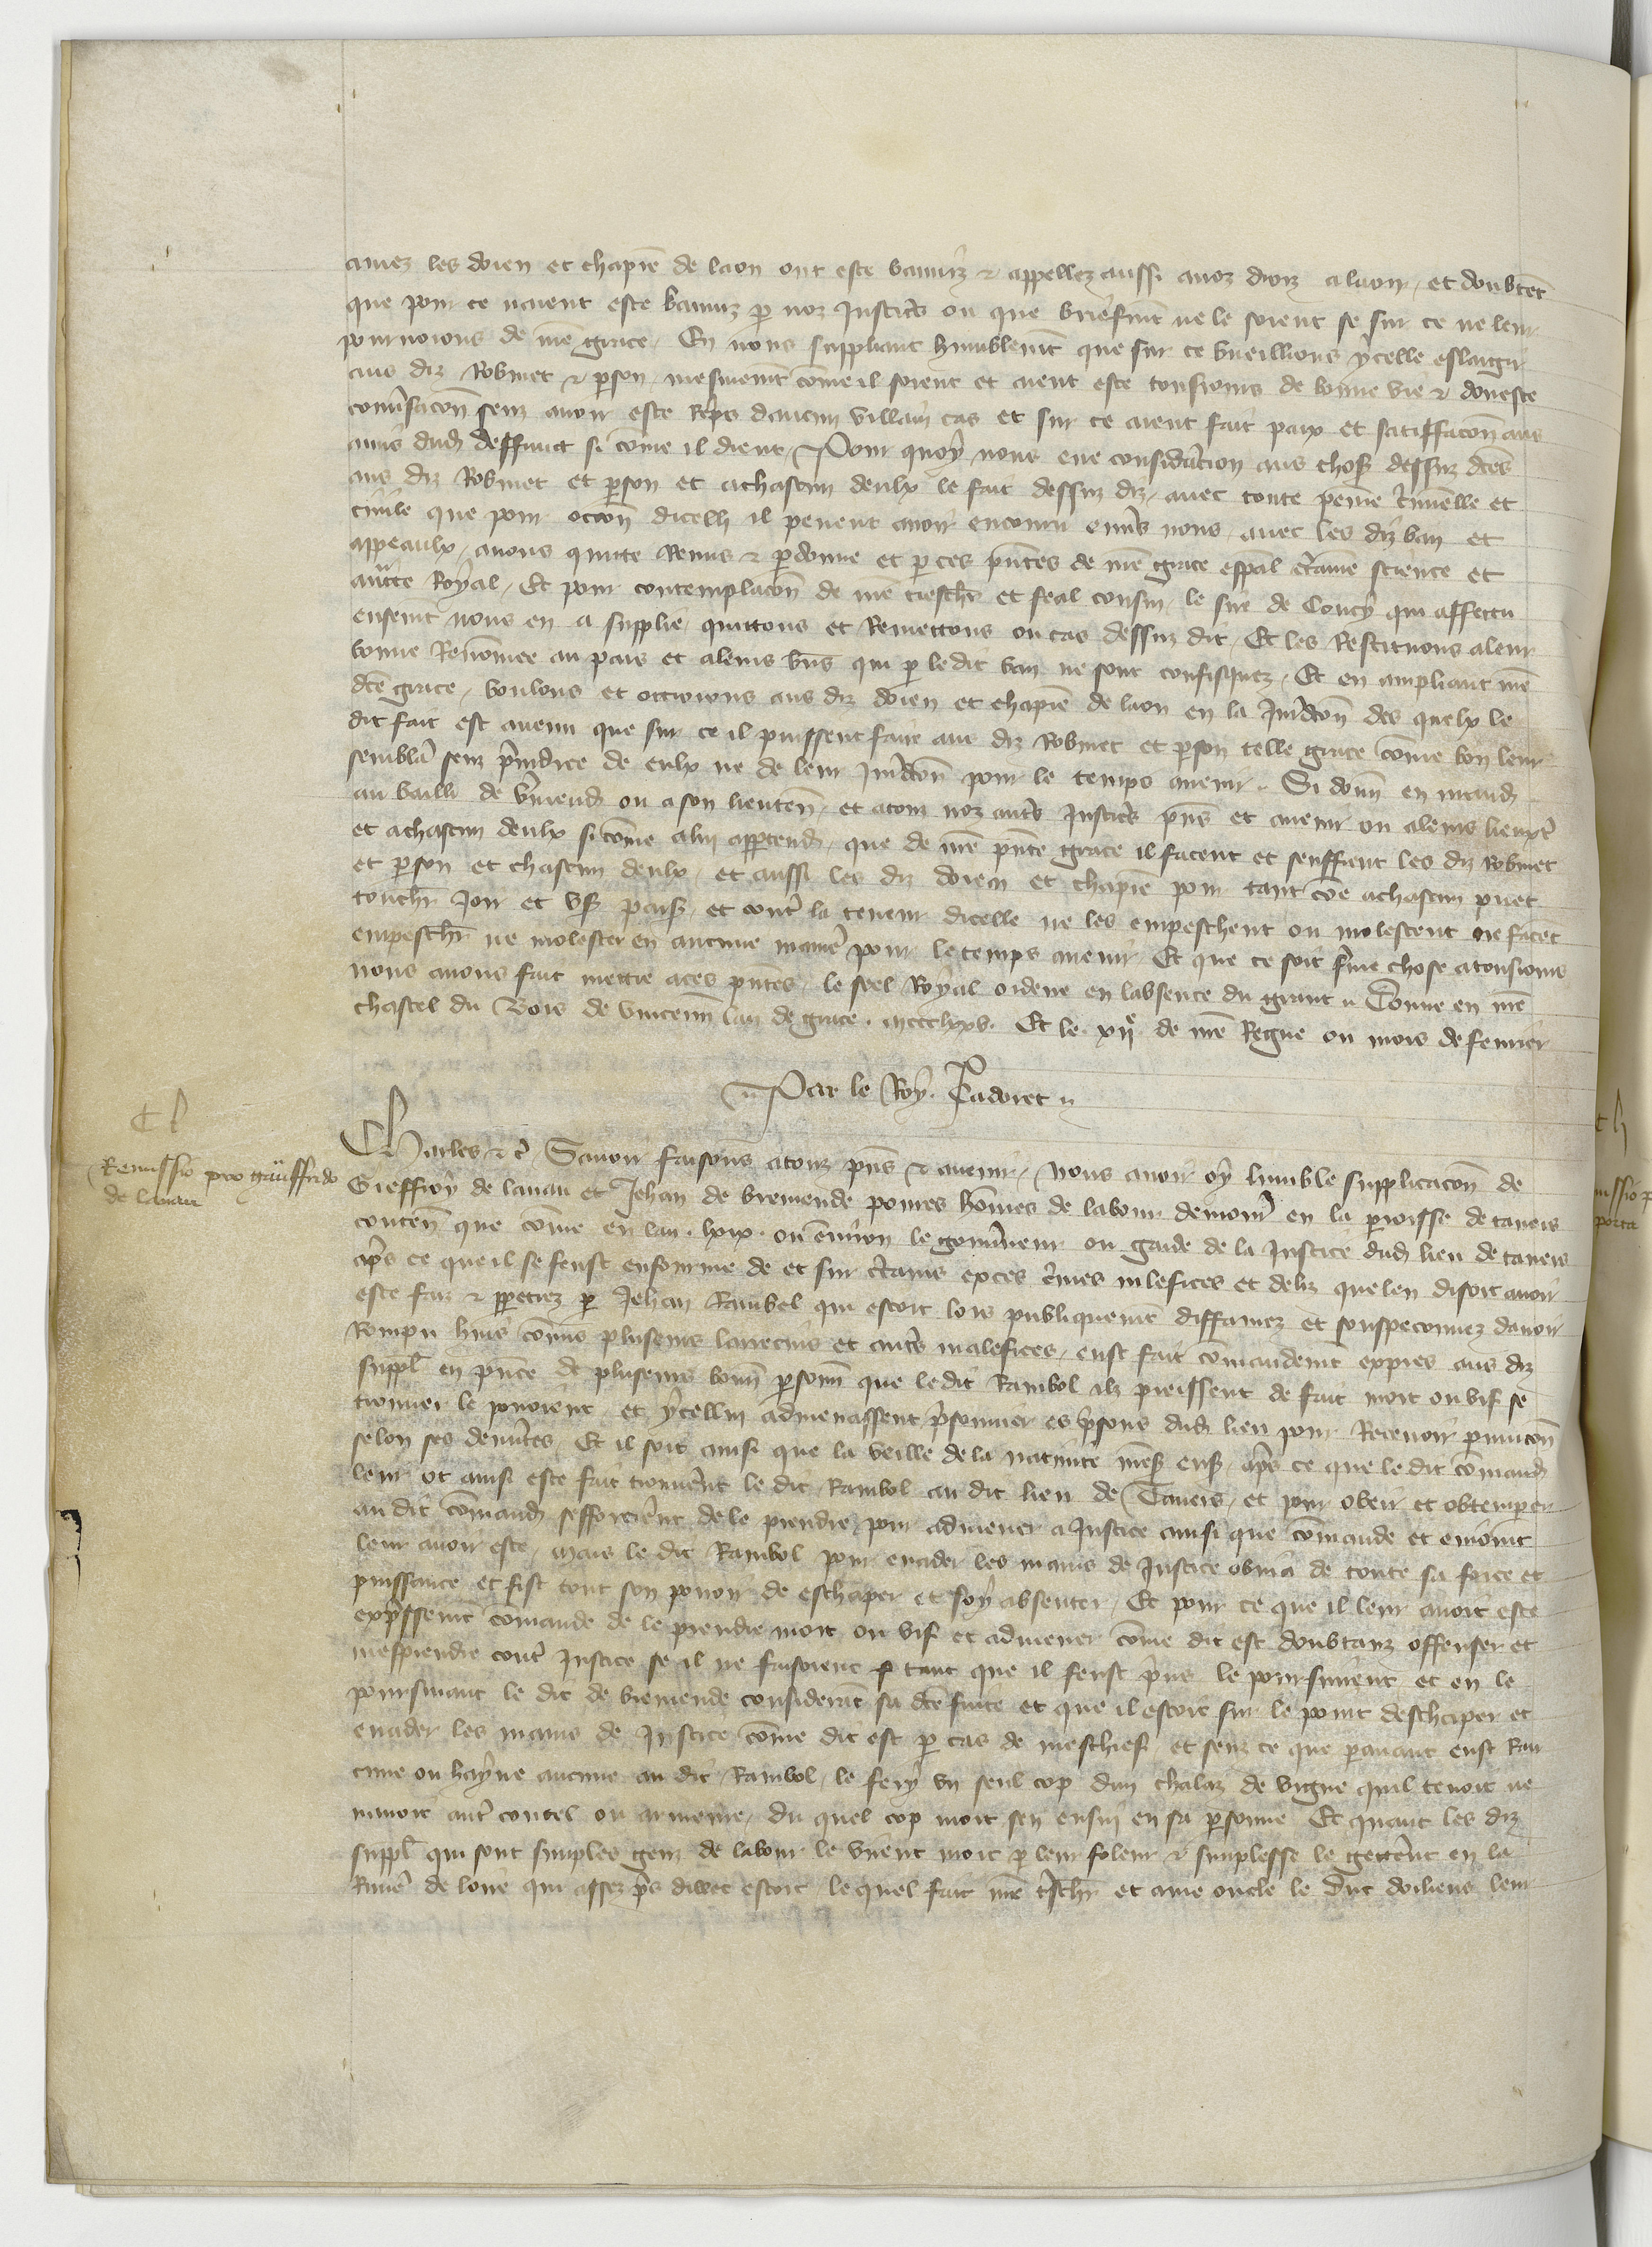 amez les doien et chapie de laon ont este banniz & appellez aussi a noz droiz a laon, et doubtēt
que pour ce naient este banniz p noz justicẽs ou que briefmt ne le soient se sur ce ne leur
pourvoions de nrē grace, En nous suppliant humblemt que sur ce vueillions ycelle eslargir
aus diz Robinet & pson, mesmemt cōme il soient et aient este tousiours de bonne vie & doneste
conv̄sacōn senz avoir este repris daucun villain cas et sur ce aient fait paix et satiffacōn aus
amis dud deffunct si cōme il dient, Pour quoy nous eue considacion aus choses dessuz dctes
aus diz Robinet et pson et a chascun deulx le fait dessuz dit, avec toute peine criminelle et
civile que pour occōn dicelli il pevent avoir encouru envs nous, avec les diz ban et
appeaulx, avons quitte remis & pdonne et p ces pntes de nrē grace espāl ctainne science et
auctte royal, Et pour contemplacōn de nrē treschr et feal cousin le sire de Coucy qui affectu
eusemt nous en a supplie, quittons et remettons ou cas dessuz dit, Et les restituons a leur
bonne renōmee au pais et a leurs biens qui p le dit ban ne sont confisquez, Et en ampliant nrē
dcte grace, voulons et octroions aus diz doien et chapie de laon en la juridcōn des quelx le
dit fait est avenu que sur ce il puissent faire aus diz Robinet et pson telle grace cōme bon leur
semblā senz prejudice de eulx ne de leur juridcōn pour le temps avenir. Si donn en mand
au bailli de Vermend ou a son lieuten, et a touz noz autrs justicẽs pns et avenir ou a leurs lieuxt
et a chascun deulx si cōme a lui appartend, que de nrē pnte grace il facent et seuffrent les diz Robinet
et pson et chascun deulx, et aussi les diz doien et chapie pour tant cōe a chascun puet
touchr joir et user paisib, et contre la teneur dicelle ne les empeschent ou molestent ne facēt
empeschr ne molester en aucune maniē pour le temps avenir Et que ce soit ferme chose a tousiours
nous avons fait mettre a ces pntes, le seel royal ordene en labsence du grant Donne en nrē
chastel du Bois de Vincenn lan de grace. mccclxxv. Et le xij.e de nrē Regne ou mois de fevrier
Par le Roy. Tadoret
Ch
Remissio pro gauffrido
de lavau
Charles &c. Savoir faisons a touz pns & avenir, Nous avoir oy lumble supplicacōn de
Gieffroy de lavau et Jehan de bremende povres hōmes de labour demour en la paroisse de taveis
conten que cōme en lan. lxix. ou environ le gouverneur ou garde de la justice dud lieu de taveis
aprs ce que il se feust enfourme de et sur ctains exces crimes malefices et deliz que len disoit avoir
este faiz & ppetrez p Jehan Raimbol qui estoit lors publiquemt diffamez et souspeconnez davoir
rompu huis cōmis plusieurs larrecins et autrs malefices, eust fait cōmandemt expres aus diz
suppl en pnce de plusieurs bonn psonn que le dit Raimbol ilz preissent de fait mort ou vif se
trouver le povoient, et ycellui admenassent prisonnier es prisons dud lieu pour recevoir punicōn
selon ses demerites, Et il soit ainsi que la veille de la nativite aprs ce que le dit cōmand
leur ot ainsi este fait trouvernt le dit Raimbol au dit lieu de Taveis, et pour obeir et obtemperer
au dit cōmand sefforcernt de le prendre pour admener a justice ainsi que cōmande et enioint
leur avoit este, mais le dit Raimbol pour evader les mains de justice obvia de toute sa force et
puissance et fist tout son povoir de eschaper et soy absenter, Et pour ce que il leur avoit este
expssemt cōmande de le prendre mort ou vif et admener cōme dit est doubtanz offenser et
mesprendre contre justice se il ne faisoient p tant que il feust pris le poursuirent et en le
poursuiant le dit de bremende considerāt sa dcte fuite et que il estoit sur le point deschaper et
evader les mains de justice cōme dit est p cas de meschief, et senz ce que pavant eust Ran
cune ou hayne aucune au dit Raimbol, le fery un seul cop dun eschalaz de vigne quil tenoit ne
navoit autr coutel ou armeure, du quel cop mort sen ensui en sa psonne Et quant les diz
suppl qui sont simples genz de labour le virent mort p leur foleur & simplesse le getternt en la
riviē de loire qui assez prs diluec estoit, le quel fait nrē trschr et ame oncle le duc dorliens leur